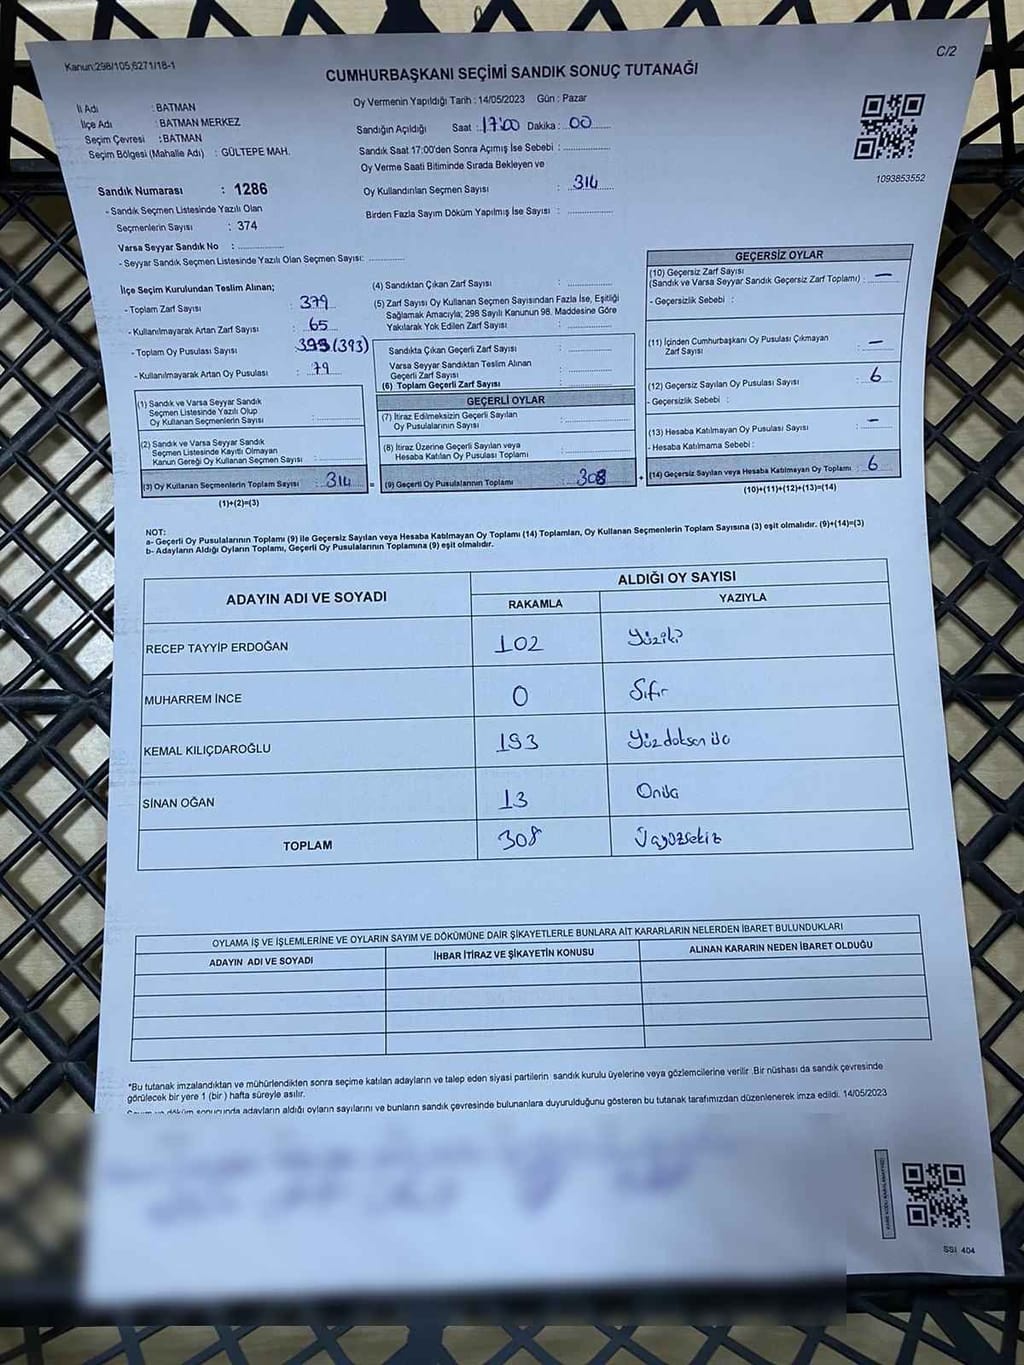 Kanun:298/105,6271/18-1
C/2
CUMHURBAŞKANI SEÇİMİ SANDIK SONUÇ TUTANAĞI
İl Adı : BATMAN
İlçe Adı : BATMAN MERKEZ
Seçim Çevresi : BATMAN
Seçim Bölgesi (Mahalle Adı) : GÜLTEPE MAH.
Sandık Numarası : 1286
- Sandık Seçmen Listesinde Yazılı Olan
Seçmenlerin Sayısı : 374
Varsa Seyyar Sandık No : ..............
- Seyyar Sandık Seçmen Listesinde Yazılı Olan Seçmen Sayısı: ............
Oy Vermenin Yapıldığı Tarih : 14/05/2023 Gün : Pazar
Sandığın Açıldığı Saat : 17:00 Dakika : 00
Sandık Saat 17:00'den Sonra Açımış İse Sebebi : ..............
Oy Verme Saati Bitiminde Sırada Bekleyen ve
Oy Kullandırılan Seçmen Sayısı : 314
Birden Fazla Sayım Döküm Yapılmış İse Sayısı : ..............
1093853552
İlçe Seçim Kurulundan Teslim Alınan;
- Toplam Zarf Sayısı : 379
- Kullanılmayarak Artan Zarf Sayısı : 65
- Toplam Oy Pusulası Sayısı : 393 (393)
- Kullanılmayarak Artan Oy Pusulası : 79
(1) Sandık ve Varsa Seyyar Sandık
Seçmen Listesinde Yazılı Olup
Oy Kullanan Seçmenlerin Sayısı : ..............
(2) Sandık ve Varsa Seyyar Sandık
Seçmen Listesinde Kayıtlı Olmayan
Kanun Gereği Oy Kullanan Seçmen Sayısı : ..............
(3) Oy Kullanan Seçmenlerin Toplam Sayısı : 314
(1)+(2)=(3)
(4) Sandıktan Çıkan Zarf Sayısı : ..............
(5) Zarf Sayısı Oy Kullanan Seçmen Sayısından Fazla İse, Eşitliği
Sağlamak Amacıyla; 298 Sayılı Kanunun 98. Maddesine Göre
Yakılarak Yok Edilen Zarf Sayısı : ..............
Sandıkta Çıkan Geçerli Zarf Sayısı : ..............
Varsa Seyyar Sandıktan Teslim Alınan
Geçerli Zarf Sayısı : ..............
(6) Toplam Geçerli Zarf Sayısı : ..............
GEÇERLİ OYLAR
(7) İtiraz Edilmeksizin Geçerli Sayılan
Oy Pusulalarının Sayısı : ..............
(8) İtiraz Üzerine Geçerli Sayılan veya
Hesaba Katılan Oy Pusulası Toplamı : ..............
= (9) Geçerli Oy Pusulalarının Toplamı : 308
GEÇERSİZ OYLAR
(10) Geçersiz Zarf Sayısı
(Sandık ve Varsa Seyyar Sandık Geçersiz Zarf Toplamı) : —
- Geçersizlik Sebebi :
(11) İçinden Cumhurbaşkanı Oy Pusulası Çıkmayan
Zarf Sayısı : —
(12) Geçersiz Sayılan Oy Pusulası Sayısı : 6
- Geçersizlik Sebebi :
(13) Hesaba Katılmayan Oy Pusulası Sayısı : —
- Hesaba Katılmama Sebebi :
+ (14) Geçersiz Sayılan veya Hesaba Katılmayan Oy Toplamı : 6
(10)+(11)+(12)+(13)=(14)
NOT:
a- Geçerli Oy Pusulalarının Toplamı (9) ile Geçersiz Sayılan veya Hesaba Katılmayan Oy Toplamı (14) Toplamları, Oy Kullanan Seçmenlerin Toplam Sayısına (3) eşit olmalıdır. (9)+(14)=(3)
b- Adayların Aldığı Oyların Toplamı, Geçerli Oy Pusulalarının Toplamına (9) eşit olmalıdır.
ADAYIN ADI VE SOYADI ALDIĞI OY SAYISI
RAKAMLA YAZIYLA
RECEP TAYYİP ERDOĞAN 102 Yüziki
MUHARREM İNCE 0 Sıfır
KEMAL KILIÇDAROĞLU 193 Yüzdoksan üç
SİNAN OĞAN 13 Onüç
TOPLAM 308 Üçyüzsekiz
OYLAMA İŞ VE İŞLEMLERİNE VE OYLARIN SAYIM VE DÖKÜMÜNE DAİR ŞİKAYETLERLE BUNLARA AİT KARARLARIN NELERDEN İBARET BULUNDUKLARI
ADAYIN ADI VE SOYADI İHBAR İTİRAZ VE ŞİKAYETİN KONUSU ALINAN KARARIN NEDEN İBARET OLDUĞU
*Bu tutanak imzalandıktan ve mühürlendikten sonra seçime katılan adayların ve talep eden siyasi partilerin sandık kurulu üyelerine veya gözlemcilerine verilir .Bir nüshası da sandık çevresinde
görülecek bir yere 1 (bir ) hafta süreyle asılır.
Sayım ve döküm sonucunda adayların aldığı oyların sayılarını ve bunların sandık çevresinde bulunanlara duyurulduğunu gösteren bu tutanak tarafımızdan düzenlenerek imza edildi. 14/05/2023
SSI 404